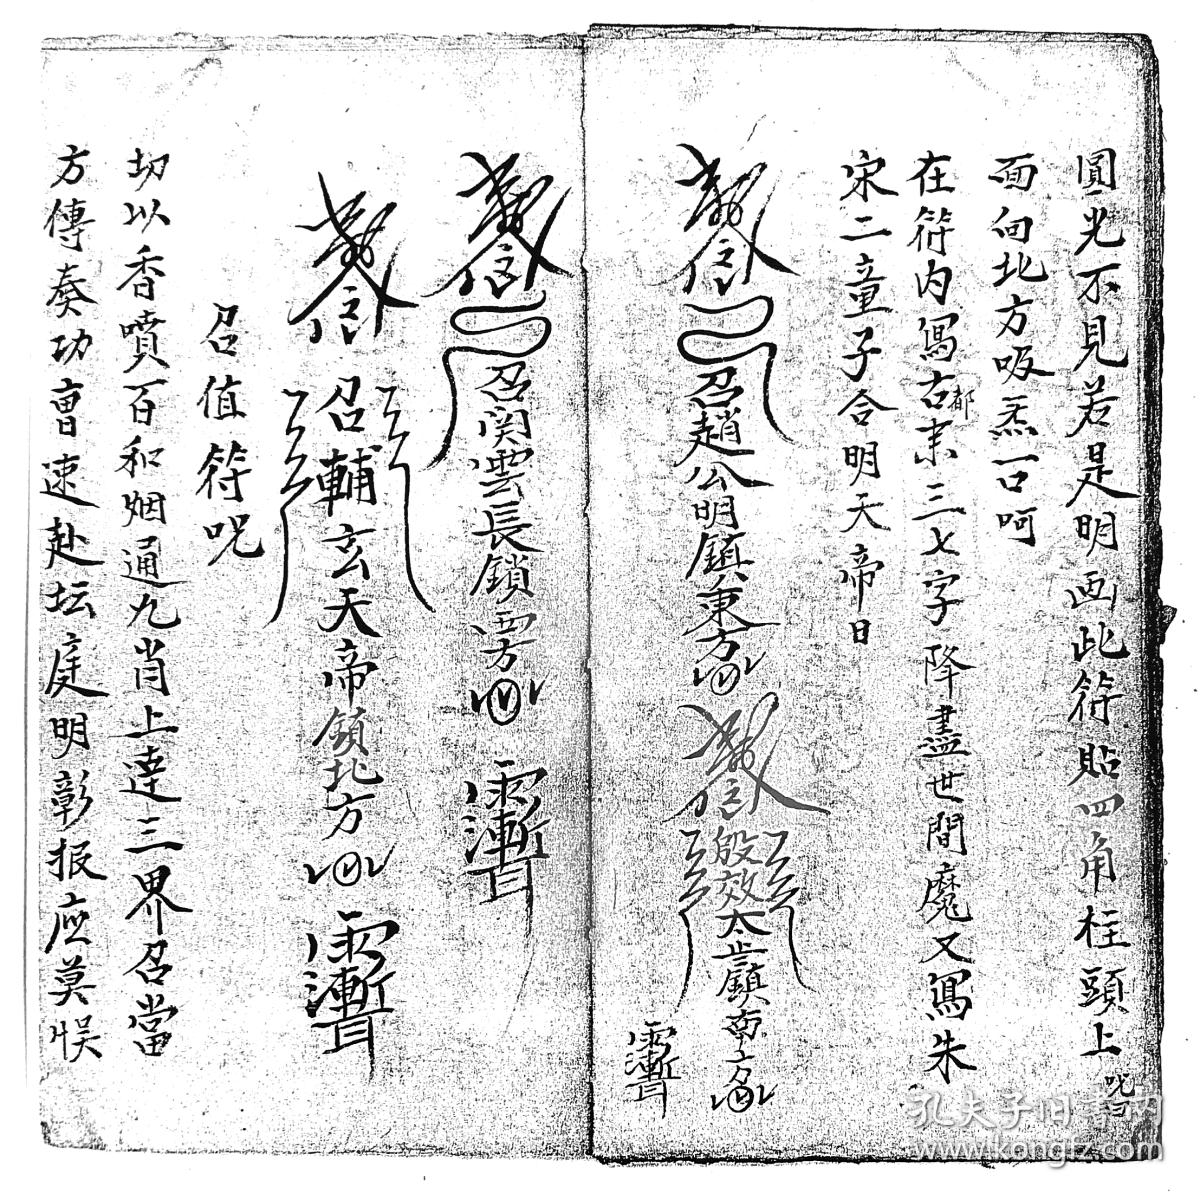 圓光不見若是明画此符貼四角柱頭上 呪曰
面向北方吸炁一口呵
在符内寫右都
三七字降盡世間魔又寫朱
宋二童子合明天帝日
召趙公明鎮東方
殷效太歲鎮南方
召関雲長鎖西方
召輔玄天帝鎮北方
召值符呪
切以香噴百和烟通九肖上達三界召當
方傳奏功曹速赴坛庭明彰报应莫悮
孔夫子旧书网
www.kongfz.com